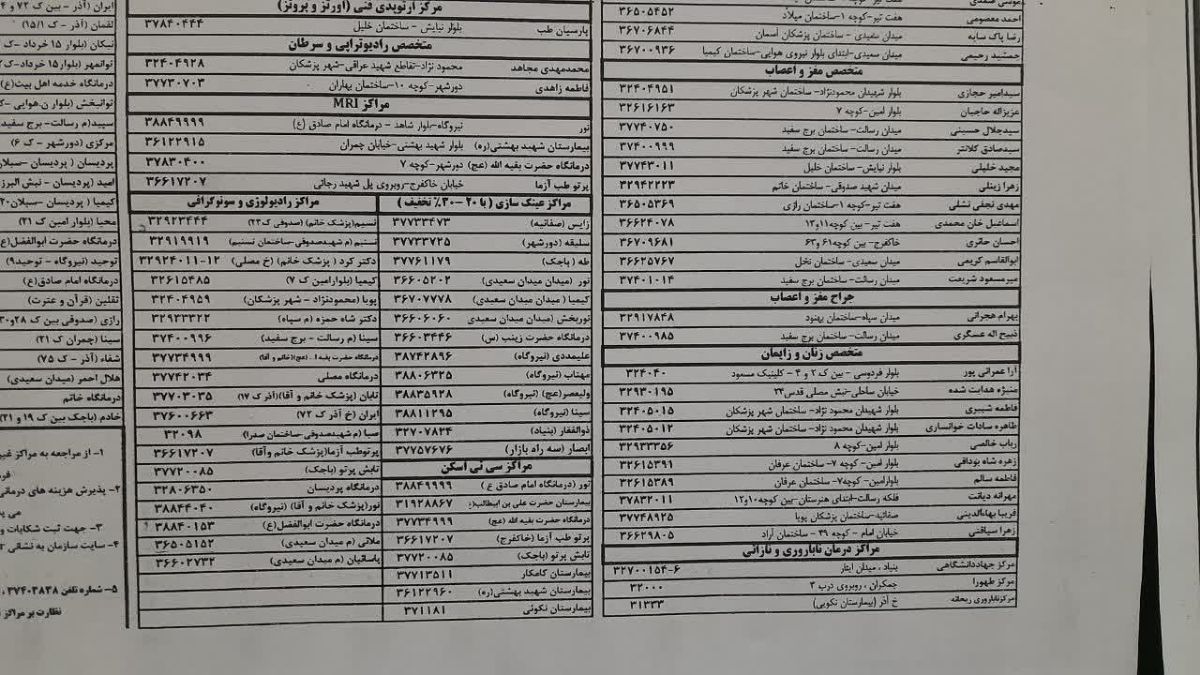 موسی صمدی
احمد معصومی هفت تیر-کوچه ۱-ساختمان میلاد ۳۶۵۰۵۴۵۲
رضا پاک سایه میدان سعیدی- ساختمان پزشکان آسمان ۳۶۷۰۶۸۴۴
جمشید رحیمی میدان سعیدی-ابتدای بلوار نیروی هوایی-ساختمان کیمیا ۳۶۷۰۰۹۳۶
متخصص مغز و اعصاب
سیدامیر حجازی بلوار شهیدان محمودنژاد- ساختمان شهر پزشکان ۳۲۴۰۴۹۵۱
عزیزاله حاجیان بلوار امین- کوچه ۷ ۳۲۶۱۶۱۶۳
سیدجلال حسینی میدان رسالت- ساختمان برج سفید ۳۷۷۴۰۷۵۰
سیدصادق کلانتر میدان رسالت- ساختمان برج سفید ۳۷۴۰۰۹۹۹
مجید خلیلی بلوار نیایش- ساختمان خلیل ۳۷۷۴۳۰۱۱
زهرا زینلی میدان شهید صدوقی- ساختمان خاتم ۳۲۹۴۲۲۲۳
مهدی نجفی تشلی هفت تیر- کوچه ۱-ساختمان رازی ۳۶۵۰۵۳۶۹
اسماعیل خان محمدی هفت تیر- بین کوچه۱۱و۱۲ ۳۶۶۲۴۰۷۸
احسان حائری خاکفرج- بین کوچه۶۱ و۶۳ ۳۶۷۰۹۶۸۱
ابوالقاسم کریمی میدان سعیدی- ساختمان نخل ۳۶۶۲۵۷۶۷
میرمسعود شریعت میدان رسالت- ساختمان برج سفید ۳۷۴۰۱۰۱۴
جراح مغز و اعصاب
بهرام هجرانی میدان سپاه-ساختمان بهنود ۳۲۹۱۷۸۴۸
ذبیح اله عسگری میدان رسالت- ساختمان برج سفید ۳۷۴۰۰۹۸۵
متخصص زنان و زایمان
آرا عمرانی پور بلوار فردوسی - بین ک ۲ و ۴ - کلینیک مسعود ۳۲۴۰۴۰
منیژه هدایت شده خیابان ساحلی-نبش مصلی قدس۲۳ ۳۲۹۳۰۱۹۵
فاطمه شبیری بلوار شهیدان محمود نژاد- ساختمان شهر پزشکان ۳۲۴۰۵۰۱۵
طاهره سادات خوانساری بلوار شهیدان محمود نژاد- ساختمان شهر پزشکان ۳۲۴۰۵۰۱۲
رباب خالصی بلوار امین-کوچه ۸ ۳۲۹۳۳۳۵۶
زهره شاه بودافی بلوار امین- کوچه ۷- ساختمان عرفان ۳۲۶۱۵۳۹۱
فاطمه سالم بلوارامین- کوچه۷- ساختمان عرفان ۳۲۶۱۵۳۸۹
مهرانه دیانت فلکه رسالت-ابتدای هنرستان-بین کوچه۱۰و۱۲ ۳۷۸۳۲۰۱۱
فریبا بهاءالدینی صفائیه-ساختمان پزشکان پویا ۳۷۷۴۸۹۲۵
زهرا سیاقتی خیابان امام - کوچه ۴۹ - ساختمان آراد ۳۶۶۲۹۸۰۵
مراکز درمان ناباروری و نازائی
مرکز جهاددانشگاهی بنیاد ، میدان ایثار ۶-۳۲۷۰۰۱۵۴
مرکز طهورا جمکران ، روبروی درب ۳ ۳۲۰۰۰
مرکزناباروری ریحانه خ آذر (بیمارستان نکویی) ۳۱۳۳۳
مرکز ارتوپدی فنی (اورتز و پروتز)
پارسیان طب بلوار نیایش - ساختمان خلیل ۳۷۸۴۰۴۴۴
متخصص رادیوتراپی و سرطان
محمدمهدی مجاهد محمود نژاد-تقاطع شهید عراقی-شهر پزشکان ۳۲۴۰۴۹۲۸
فاطمه زاهدی دورشهر-کوچه ۱۰-ساختمان بهاران ۳۷۷۳۰۷۰۳
مراکز MRI
نور نیروگاه-بلوار شاهد - درمانگاه امام صادق (ع) ۳۸۸۴۹۹۹۹
بیمارستان شهید بهشتی(ره) بلوار شهید بهشتی-خیابان چمران ۳۶۱۲۲۹۱۵
درمانگاه حضرت بقیه الله (عج) دورشهر-کوچه ۷ ۳۷۸۳۰۴۰۰
پرتو طب آزما خیابان خاکفرج-روبروی پل شهید رجائی ۳۶۶۱۷۲۰۷
مراکز عینک سازی ( با ۲۰ -۳۰٪ تخفیف )
زایس (صفائیه) ۳۷۷۳۳۴۷۳
سلیقه (دورشهر) ۳۷۷۳۳۷۲۵
طه (باجک) ۳۷۷۶۱۱۷۹
نور (میدان میدان سعیدی) ۳۶۶۰۵۲۰۲
کیمیا ( میدان میدان سعیدی) ۳۶۷۰۷۷۷۸
نوربخش (میدان میدان سعیدی ۳۶۶۰۶۰۶۰
درمانگاه حضرت زینب (س) ۳۶۶۰۳۴۴۶
علیمددی (نیروگاه) ۳۸۷۴۲۸۹۶
مهتاب (نیروگاه) ۳۸۸۰۶۳۲۵
ولیعصر(عج) (نیروگاه) ۳۸۸۳۵۹۲۸
سینا (نیروگاه) ۳۸۸۱۱۲۹۵
ذوالفقار (بنیاد) ۳۲۷۰۷۸۲۴
ابصار (سه راه بازار) ۳۷۷۵۷۶۷۶
مراکز سی تی اسکن
نور (درمانگاه امام صادق ع ) ۳۸۸۴۹۹۹۹
بیمارستان حضرت علی بن ابیطالب(ع) ۳۱۹۲۸۸۶۷
درمانگاه حضرت بقیه الله (عج) ۳۷۷۳۴۹۹۹
پرتو طب آزما (خاکفرج) ۳۶۶۱۷۲۰۷
تابش پرتو (باجک) ۳۷۷۲۰۰۸۵
بیمارستان کامکار ۳۷۷۱۳۵۱۱
بیمارستان شهید بهشتی(ره) ۳۶۱۲۲۹۶۰
بیمارستان نکوئی ۳۷۱۱۸۱
مراکز رادیولوژی و سونوگرافی
نسیم(پزشک خانم) (صدوقی ک۲۳) ۳۲۹۲۳۴۴۴
تسنیم (م شهیدصدوقی-ساختمان تسنیم) ۳۲۹۱۹۹۱۹
دکتر کرد ( پزشک خانم) (خ مصلی) ۱۲-۳۲۹۲۴۰۱۱
کیمیا (بلوارامین ک ۷) ۳۲۶۱۵۴۸۵
پویا (محمودنژاد - شهر پزشکان) ۳۲۴۰۴۹۵۹
دکتر شاه حمزه (م سپاه) ۳۲۹۳۳۳۲۲
سینا (م رسالت - برج سفید) ۳۷۴۰۰۹۹۶
درمانگاه حضرت بقیه ا.. (عج)(خانم و آقا) ۳۷۷۳۴۹۹۹
درمانگاه مصلی ۳۷۷۴۲۰۳۴
تابان (پزشک خانم و آقا)(آذر ک ۱۷) ۳۷۷۰۳۰۳۵
ایران (خ آذر ک ۷۲) ۳۷۶۰۰۶۶۳
صبا (م شهیدصدوقی-ساختمان صدرا) ۳۲۰۹۸
پرتوطب آزما(پزشک خانم وآقا) ۳۶۶۱۷۲۰۷
تابش پرتو (باجک) ۳۷۷۲۰۰۸۵
درمانگاه پردیسان ۳۲۸۰۶۳۵۰
نور(پزشک خانم و آقا) (نیروگاه) ۳۸۸۴۴۰۴۰
درمانگاه حضرت ابوالفضل(ع) ۳۸۸۴۰۱۵۳
ملائی (م میدان سعیدی) ۳۶۵۰۵۱۵۲
پاسائیان (م میدان سعیدی) ۳۶۶۰۲۷۳۲
ایران (آذر - بین ک ۷۲ و ۴
لقمان (آذر - ک ۱۵/۱)
نیکان (بلوار ۱۵ خرداد -ک
توانمهر (بلوار۱۵ خرداد-ک۲
درمانگاه خدمه اهل بیت(ع)
توانبخش (بلوار ن.هوایی -ک
سپید(م رسالت- برج سفید
مرکزی (دورشهر - ک ۶)
پردیسان ( پردیسان -سبلان
امید (پردیسان - نبش البرز
کیمیا ( پردیسان -سبلان۲۰
محیا (بلوار امین ک ۲۱)
درمانگاه حضرت ابوالفضل(ع
توحید (نیروگاه - توحید۹)
درمانگاه امام صادق(ع)
ثقلین (قرآن و عترت)
رازی (صدوقی بین ک ۲۸و۳۰
سینا (چمران ک ۲۱)
شفاء (آذر - ک ۷۵)
هلال احمر (میدان سعیدی)
درمانگاه خاتم
خادم (باجک بین ک ۱۹ و ۲۱)
۱- از مراجعه به مراکز غیر
۲- پذیرش هزینه های درمانی
می
۳- جهت ثبت شکایات و
۴- سایت سازمان به نشانی
۵- شماره تلفن ۳۷۴۰۳۸۳۸
نظارت بر مراکز